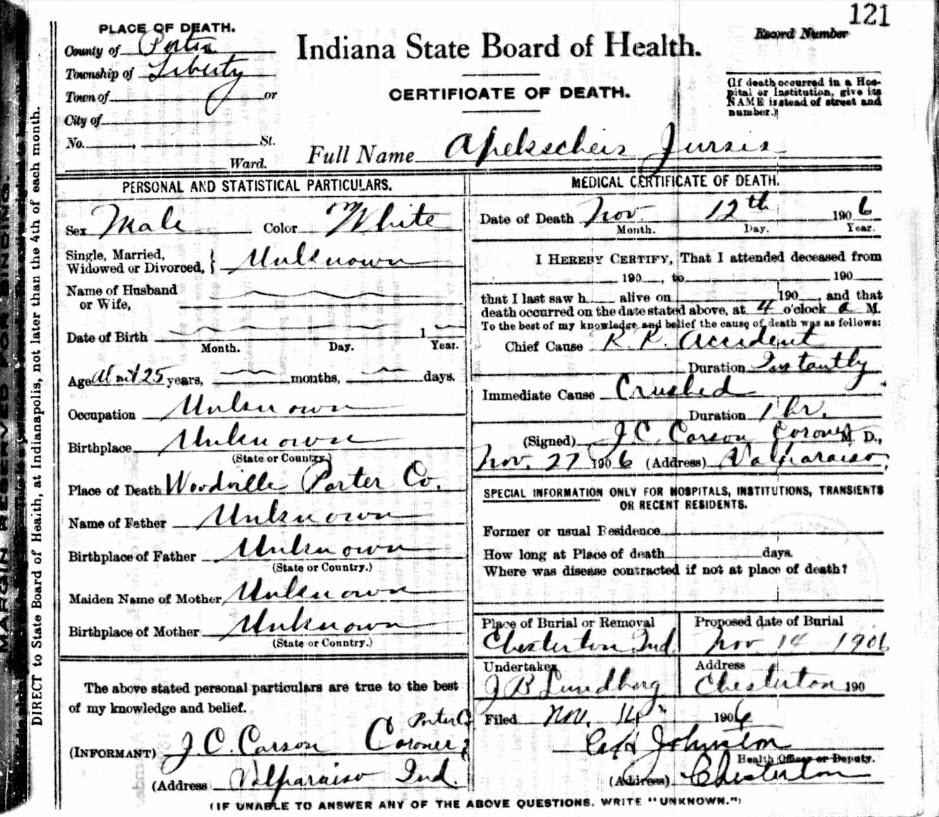 121
PLACE OF DEATH.
County of Porter
Township of Liberty
Town of or
City of
No. , St.
Ward.
Indiana State Board of Health.
CERTIFICATE OF DEATH.
Record Number
(If death occurred in a Hos-
pital or Institution, give its
NAME instead of street and
number.)
Full Name Apekscheis Jursis
PERSONAL AND STATISTICAL PARTICULARS.
Sex Male Color White
Single, Married,
Widowed or Divorced, } Unknown
Name of Husband
or Wife,
Date of Birth 1
Month. Day. Year.
Age About 25 years, months, days.
Occupation Unknown
Birthplace Unknown
(State or Country.)
Place of Death Woodville Porter Co.
Name of Father Unknown
Birthplace of Father Unknown
(State or Country.)
Maiden Name of Mother Unknown
Birthplace of Mother Unknown
(State or Country.)
The above stated personal particulars are true to the best
of my knowledge and belief.
(INFORMANT) J. C. Carson Coroner Porter Co
(Address) Valparaiso Ind
MEDICAL CERTIFICATE OF DEATH.
Date of Death Nov 12th 1906
Month. Day. Year.
I HEREBY CERTIFY, That I attended deceased from
190 , to 190
that I last saw h alive on 190 and that
death occurred on the date stated above, at 4 o'clock a M.
To the best of my knowledge and belief the cause of death was as follows:
Chief Cause R. R. Accident
Duration Instantly
Immediate Cause Crushed
Duration 1 hr.
(Signed) J. C. Carson Coroner M. D.,
Nov. 27 1906 (Address) Valparaiso
SPECIAL INFORMATION ONLY FOR HOSPITALS, INSTITUTIONS, TRANSIENTS
OR RECENT RESIDENTS.
Former or usual Residence
How long at Place of death days.
Where was disease contracted if not at place of death?
Place of Burial or Removal
Chesterton, Ind.
Proposed date of Burial
Nov 14 1906
Undertaker
J B Lundberg
Address
Chesterton 190
Filed Nov. 14th 1906
Johnston
Health Officer or Deputy.
(Address) Chesterton
(IF UNABLE TO ANSWER ANY OF THE ABOVE QUESTIONS, WRITE "UNKNOWN.")
MARGIN RESERVED FOR BINDING.
DIRECT to State Board of Health, at Indianapolis, not later than the 4th of each month.